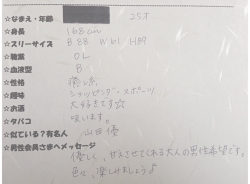 ☆なまえ・年齢 25才
☆身長 168cm
☆スリーサイズ B.88 W.61 H.89
☆職業 OL
☆血液型 B
☆性格 癒し系
☆趣味 ショッピング・スポーツ
☆お酒 大好きです☆
☆タバコ 吸います。
☆似ている?有名人 山田優
☆男性会員さまへメッセージ
優しく、甘えさせてくれる大人の男性希望です。
楽しみましょう♪